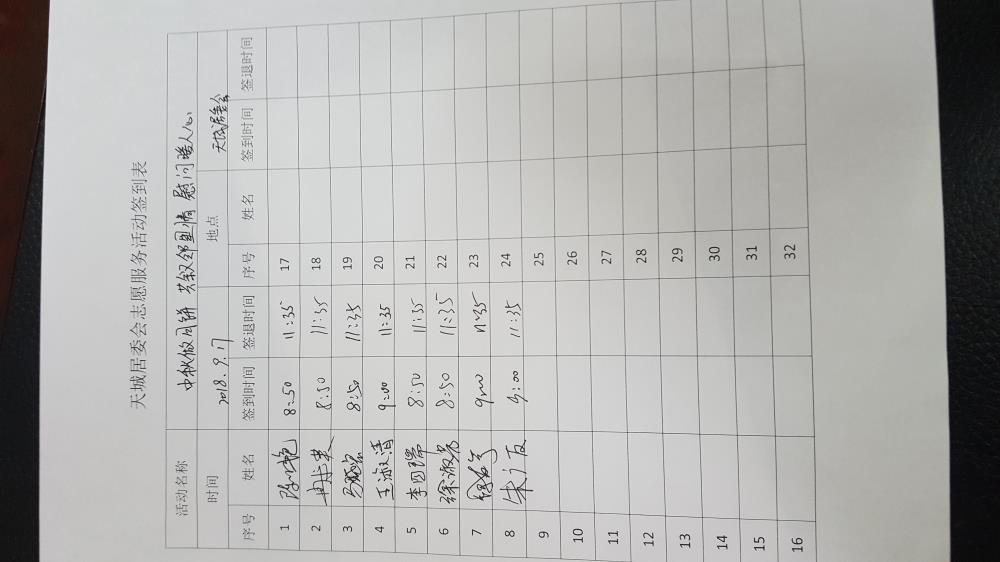 天城居委会志愿服务活动签到表
活动名称 中秋做月饼 共叙邻里情 慰问暖人心
时间 2018.9.17 地点 天城居委会
序号 姓名 签到时间 签退时间 序号 姓名 签到时间 签退时间
1 8:50 11:35 17
2 8:50 11:35 18
3 8:50 11:35 19
4 王淑清 9:00 11:35 20
5 李国瑞 8:50 11:35 21
6 徐淑芳 8:50 11:35 22
7 9:00 11:35 23
8 9:00 11:35 24
9 25
10 26
11 27
12 28
13 29
14 30
15 31
16 32